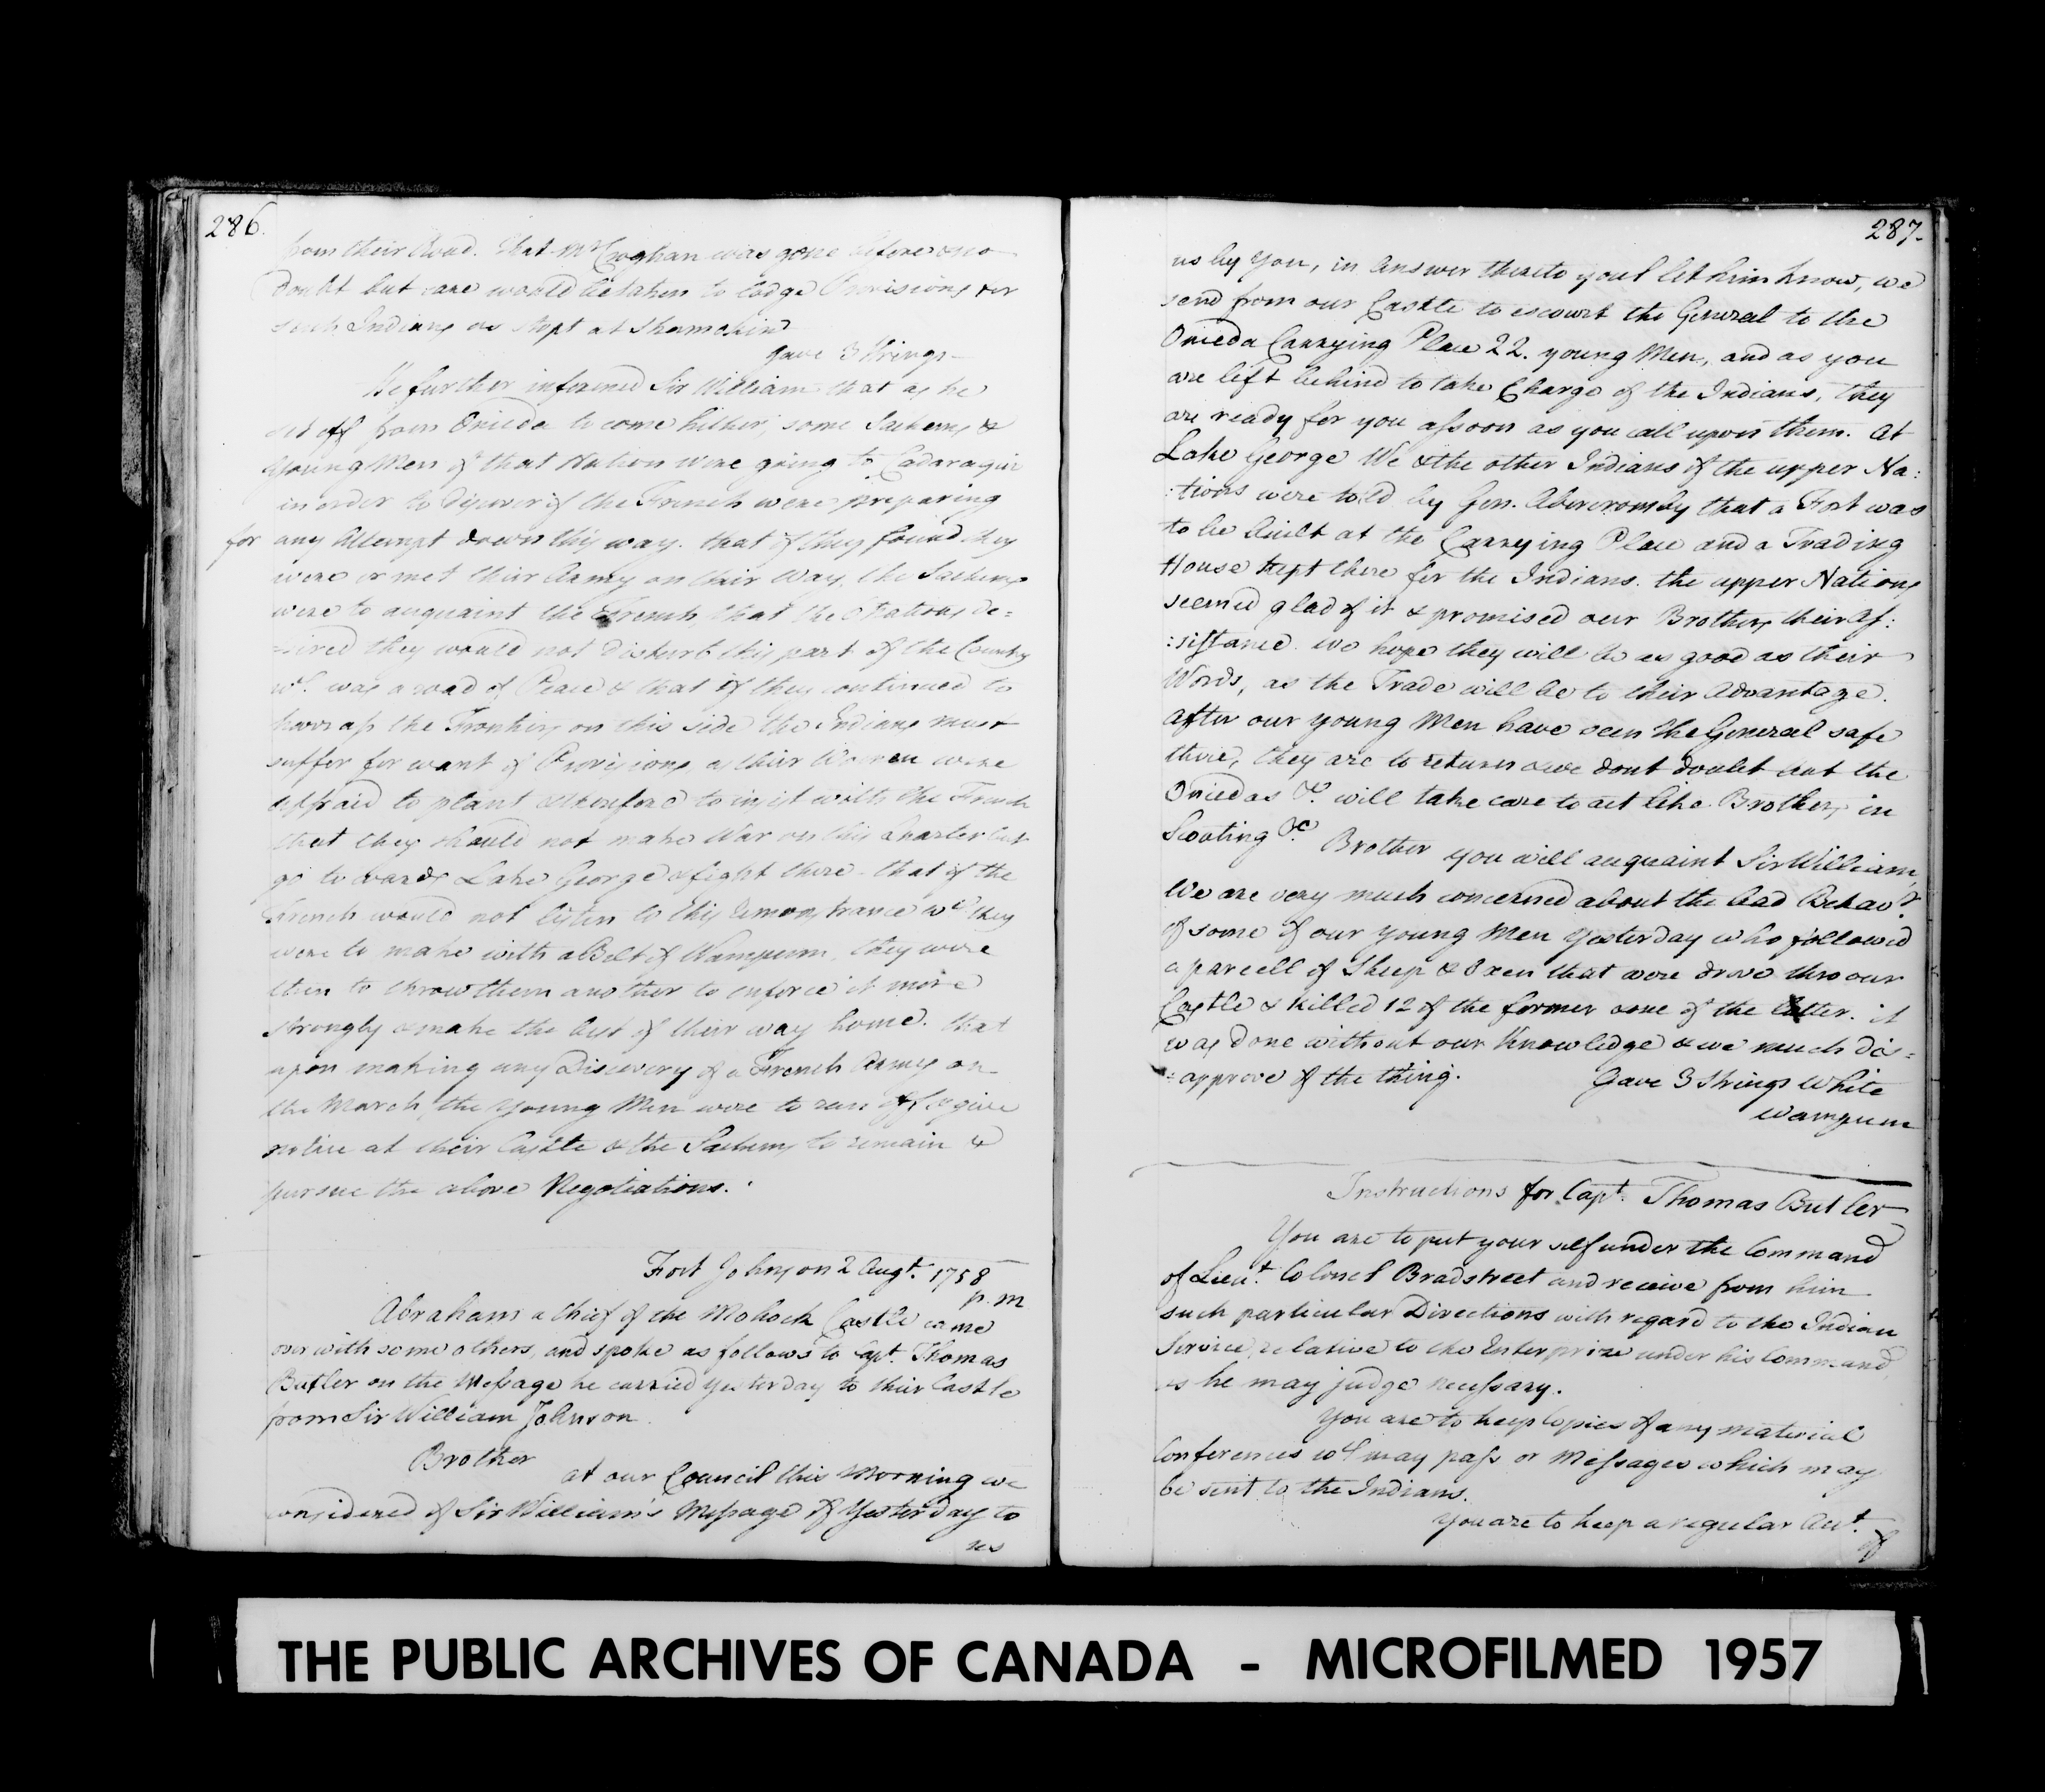 286.
from their Road. that Mr Croghan was gone before & no
doubt but care would be taken to lodge Provisions for
such Indians as stopt at Shamokin
Gave 3 Strings
He further informed Sir William that as he
set off from Onieda to come hither, some Sachems &
Young Men of that Nation were going to Cadaraqui
in order to discover if the French were preparing
for any Attempt down this way. that if they found they
were or met their Army on their Way, the Sachems
were to acquaint the French, that the 6 Nations de=
=sired they would not disturb this part of the Country
wh. was a road of Peace & that if they continued to
harrass the Frontiers on this side the Indians must
suffer for want of Provisions, as their Women were
affraid to plant & therefore to insist with the French
that they should not make War on this Quarter but
go towards Lake George & fight there. that if the
French would not listen to this Remonstrance wh. they
were to make with a Belt of Wampum, they were
then to throw them another to enforce it more
strongly & make the best of their way home. that
upon making any Discovery of a French Army on
the March, the Young Men were to run off & give
notice at their Castle & the Sachems to remain &
pursue the above Negotiations.
Fort Johnson 2 Augt. 1758
p.m
Abraham a Chief of the Mohock Castle came
over with some others, and spoke as follows to Capt. Thomas
Butler on the Message he carried Yesterday to their Castle
from Sir William Johnson.
Brother
at our Council this Morning we
considered of Sir William's Message of Yesterday to
us
287.
us by You, in answer thereto youl let him know, we
send from our Castle to escourt the General to the
Onieda Carrying Place 22. young Men, and as you
are left behind to take Charge of the Indians, they
are ready for you assoon as you call upon them. At
Lake George We & the other Indians of the upper Na:
:tions were told by Gen. Abercromby that a Fort was
to be built at the Carrying Place and a Trading
House kept there for the Indians. the upper Nations
seemed glad of it & promised our Brothers their As:
:sistance. we hope they will be as good as their
Words, as the Trade will be to their Advantage.
After our young Men have seen the General safe
there, they are to return & we dont doubt but the
Oniedas &c. will take care to act like Brothers in
Scouting &c.
Brother you will acquaint Sir William,
We are very much concerned about the bad Behavr.
of some of our young Men Yesterday who followed
a parcell of Sheep & Oxen that were drove thro our
Castle & killed 12 of the former & one of the latter. it
was done without our Knowledge & we much dis=
=approve of the thing.
Gave 3 Strings White
Wampum
Instructions for Capt. Thomas Butler
You are to put your self under the Command
of Lieut. Colonel Bradstreet and receive from him
such particular Directions with regard to the Indian
Service, relative to the Enterprize under his Command,
as he may judge necessary.
You are to keep Copies of any material
Conferences wh. may pass or Messages which may
be sent to the Indians.
You are to keep a regular Acct.
of
THE PUBLIC ARCHIVES OF CANADA - MICROFILMED 1957